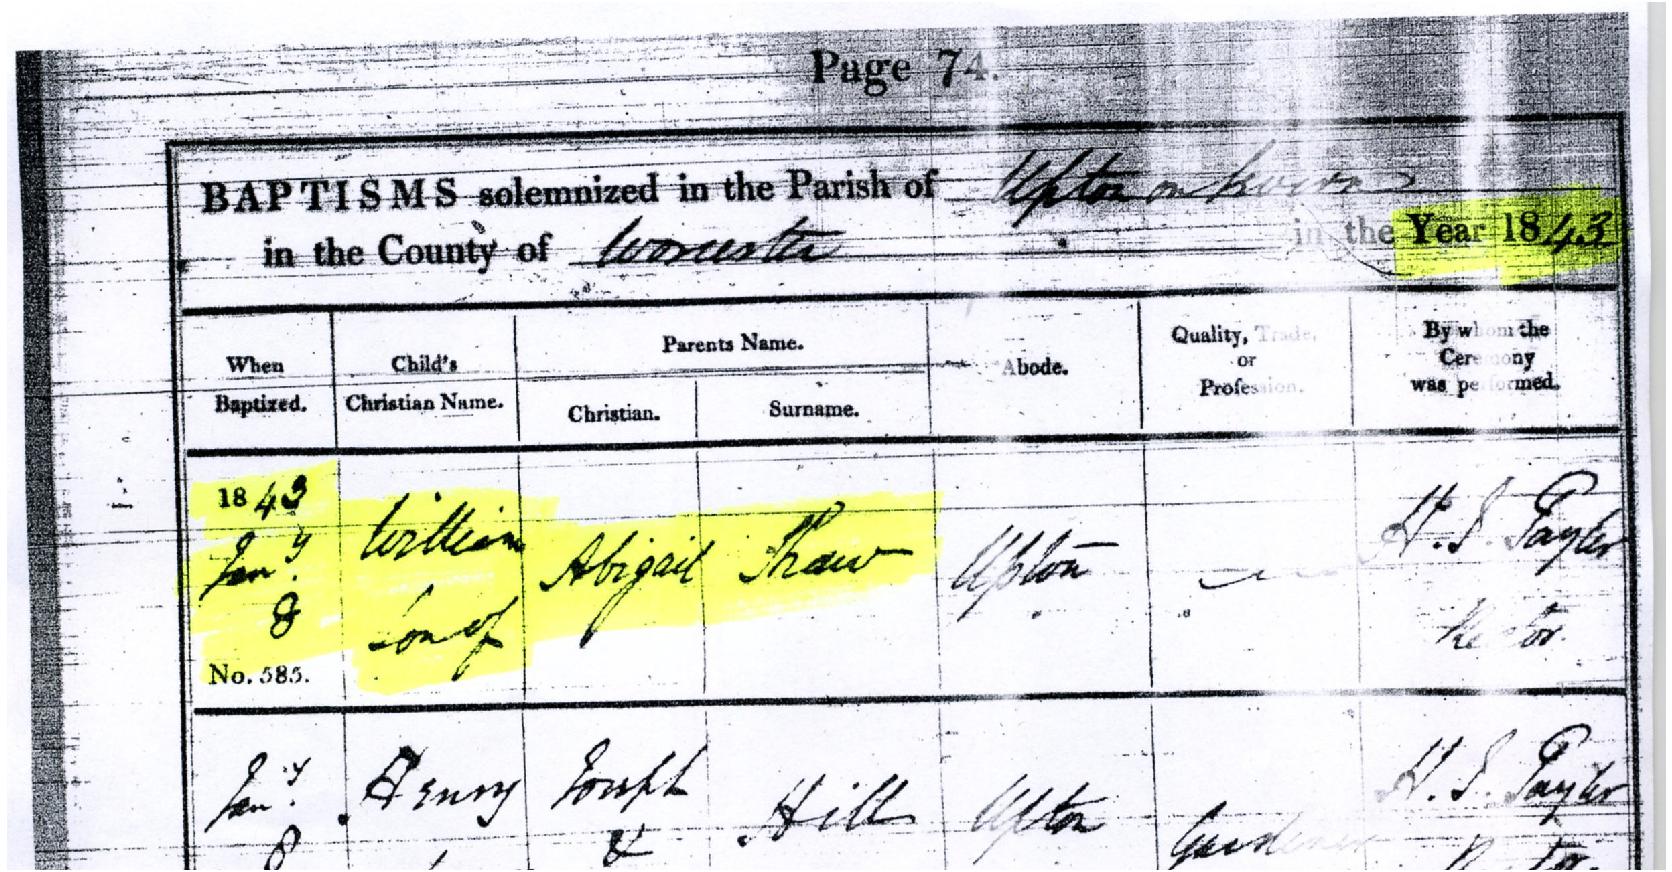 Page 74.
BAPTISMS solemnized in the Parish of Upton on Severn
in the County of Worcester in the Year 1843
When Baptized.
Child's Christian Name.
Parents Name.
Christian.
Surname.
Abode.
Quality, Trade, or Profession.
By whom the Ceremony was performed.
1843
Jany.
8
No. 585.
William
Son of
Abigail
Upton
H. J. Taylor
Rector
Jany.
8
Henry
Joseph
&
Hill
Upton
Gardener
H. J. Taylor
Rector